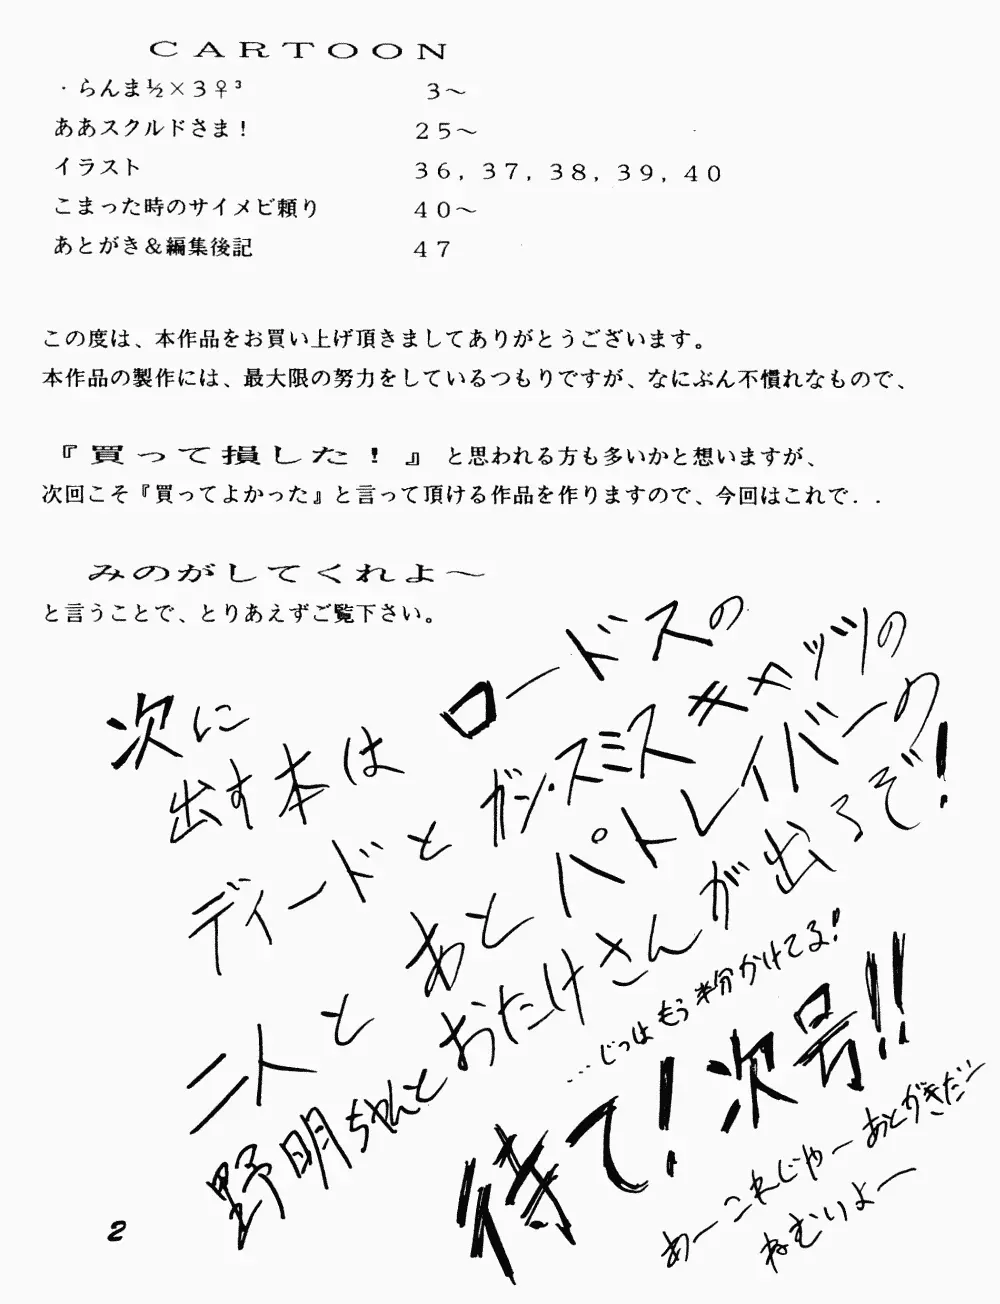 CARTOON
・らんま½×3♀³ 3〜
ああスクルドさま！ 25〜
イラスト 36，37，38，39，40
こまった時のサイメビ頼り 40〜
あとがき＆編集後記 47
この度は、本作品をお買い上げ頂きましてありがとうございます。
本作品の製作には、最大限の努力をしているつもりですが、なにぶん不慣れなもので、
『買って損した！』と思われる方も多いかと想いますが、
次回こそ『買ってよかった』と言って頂ける作品を作りますので、今回はこれで．．
みのがしてくれよ〜
と言うことで、とりあえずご覧下さい。
次に
出す本は ロードスの
ディードと ガン・スミスキャッツの
二人と あとパトレイバーの
野明ちゃんとおたけさんが出るぞ！
…じつはもう半分かけてる！
待て！次号！！
あーこれじゃーあとがきだー
ねむいよー
2